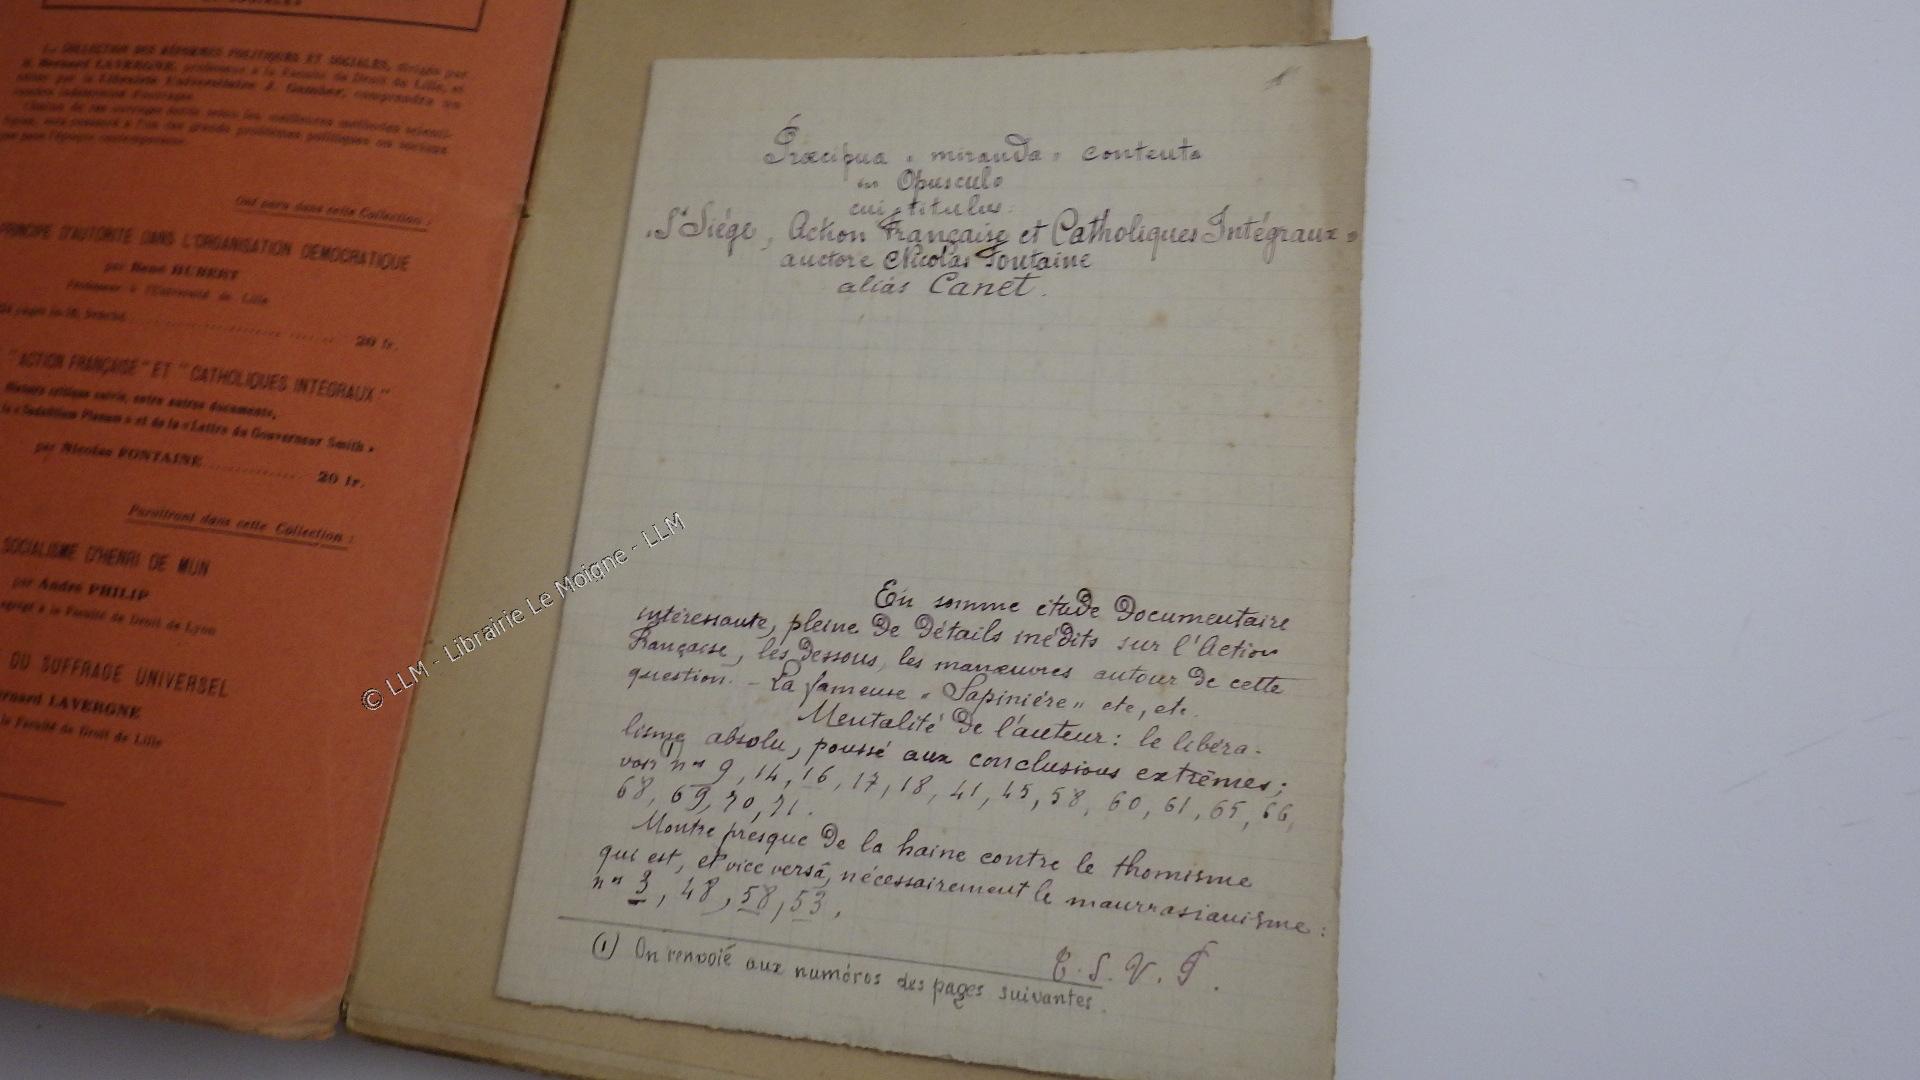 ET SOCIALES
La COLLECTION DES RÉFORMES POLITIQUES ET SOCIALES, dirigée par
M. Bernard LAVERGNE, professeur à la Faculté de Droit de Lille, et
éditée par la Librairie Universitaire J. Gamber, comprendra un
nombre indéterminé d'ouvrages.
Chacun de ces ouvrages écrits selon les meilleures méthodes scienti-
fiques, sera consacré à l'un des grands problèmes politiques ou sociaux
que pose l'époque contemporaine.
Ont paru dans cette Collection :
PRINCIPE D'AUTORITÉ DANS L'ORGANISATION DÉMOCRATIQUE
par René HUBERT
Professeur à l'Université de Lille
pages in-16, broché 20 fr.
"ACTION FRANÇAISE" ET "CATHOLIQUES INTÉGRAUX"
Histoire critique suivie, entre autres documents,
du « Sodalitium Pianum » et de la « Lettre du Gouverneur Smith »
par Nicolas FONTAINE 20 fr.
Paraîtront dans cette Collection :
SOCIALISME D'HENRI DE MUN
par André PHILIP
agrégé à la Faculté de Droit de Lyon
DU SUFFRAGE UNIVERSEL
Bernard LAVERGNE
à la Faculté de Droit de Lille
Præcipua « miranda » contenta
in Opusculo
cui titulus:
« St Siège, Action Française et Catholiques Intégraux »
auctore Nicolas Fontaine
aliás Canet.
En somme étude documentaire
intéressante, pleine de détails inédits sur l'Action
Française, les dessous, les manœuvres autour de cette
question. - La fameuse « Sapinière » etc, etc.
Mentalité de l'auteur : le libéra-
lisme absolu, poussé aux conclusions extrêmes ;
voir (1) nos 9, 14, 16, 17, 18, 41, 45, 58, 60, 61, 65, 66,
68, 69, 70, 71.
Montre presque de la haine contre le thomisme
qui est, et vice versâ, nécessairement le maurrasianisme :
nos 3, 48, 58, 53.
T. S. V. P.
(1) On renvoie aux numéros des pages suivantes.
© LLM - Librairie Le Moigne - LLM